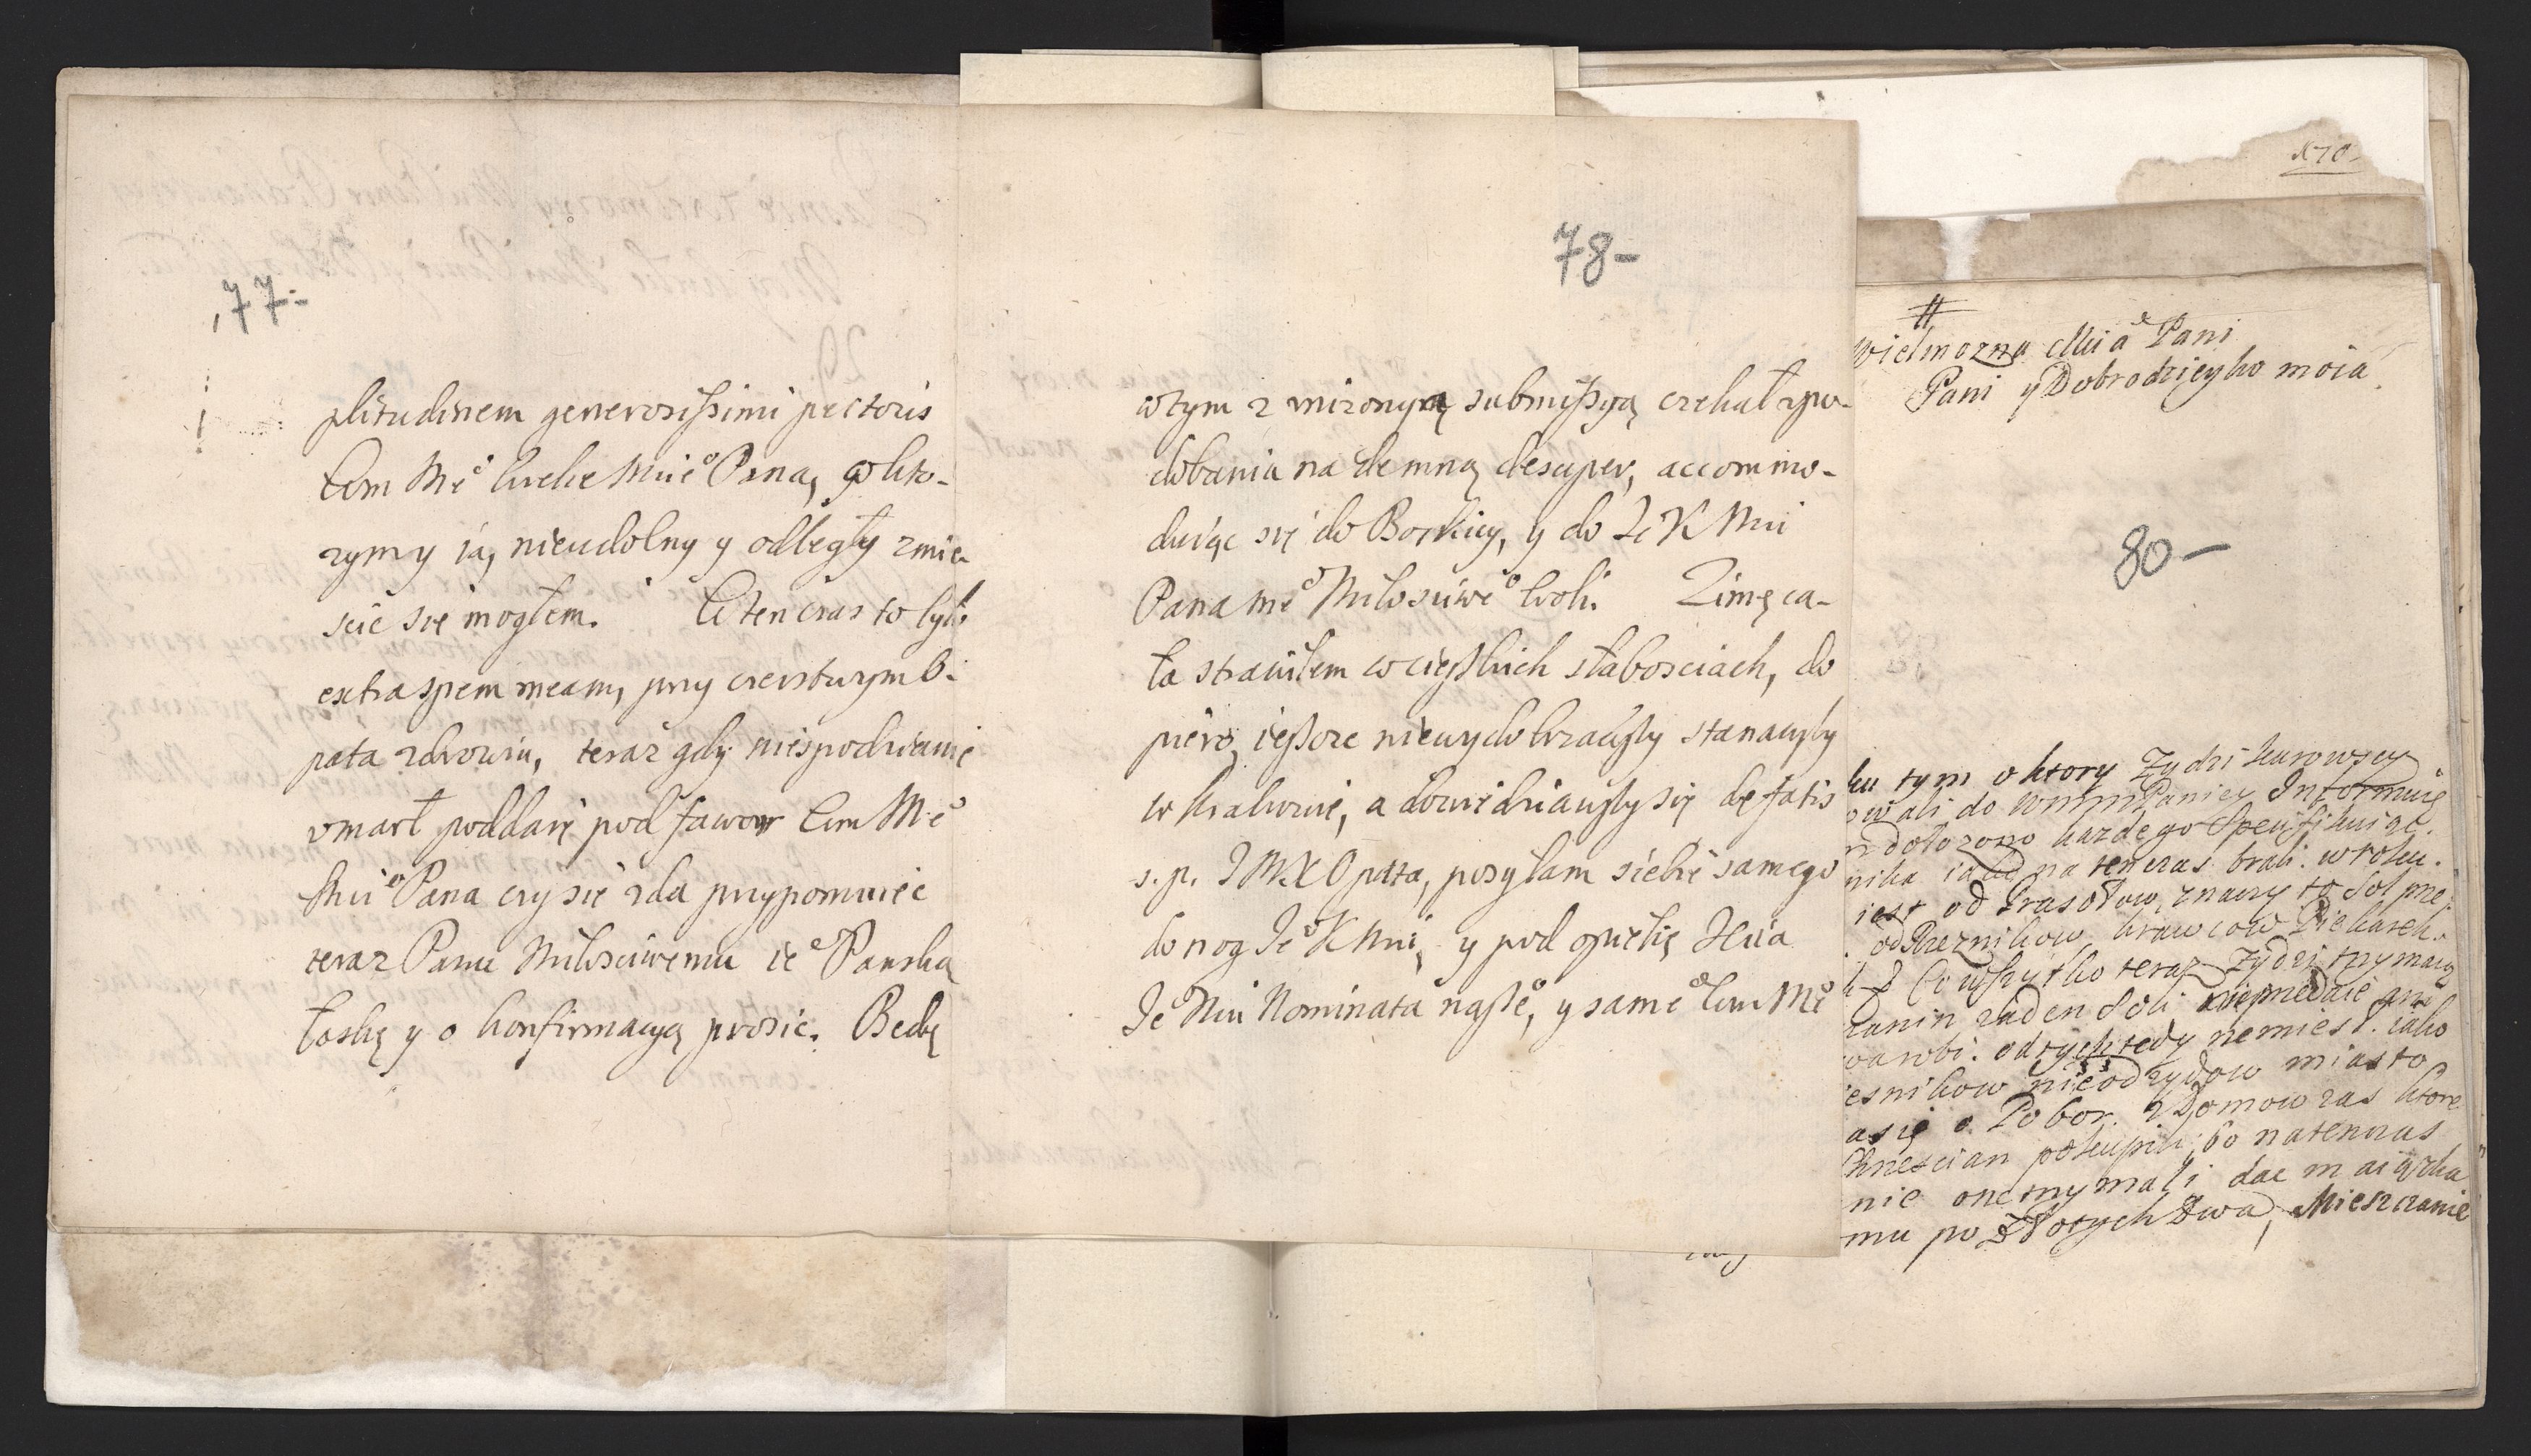 77-
plitudinem generosissimi pectoris
Mnie Pana, w kto-
rymy ia, nieudolny y odległy zmie-
scic się mogłem. W ten czas to było
extra spem meam, przy czerstwym O-
pata zdrowiu, teraz gdy niespodzianie
umarł poddaię pod fawor
Pana czy się zda przypomniec
teraz Panu Miłosciwemu Panską
łaskę y o konfirmacyą prosic. Będę
78-
w tym z unizonyą submissyą czekał zpo-
dobania nademną desuper, accommo-
duiąc się do Boskiey, y do
Pana Miłosciwe woli. Zimę ca-
ła strawiłem w ciężkich słabosciach, do
piero, ieszcze niewydobrzawszy stanąwszy
w Krakowie, a dowiedziawszy się de fatis
s.p. Opata, posyłam siebie samego
do nog y pod opiekę
Nominata nasze, y same
170
Wielmozna Mia Pani
Pani y Dobrodzieyko moia
80-
ku tym o ktory Zydzi Kurowscy
owali do Paniey Informuię
dołozono kazdego Specifikuiąc.
nika na tenczas brali. w roku.
iest od Prasołow, znaczy to Sol prze
od Rzeznikow, krawcow Piekarek.
Co wszytko teraz Zydzi trzymaią
zanin zaden Soli nieprzedaie ani
warobi. od tych tedy niemiest. iako
esnikow nie od zydow miasto
a się o Pobor. z Domow zas ktore
Chrzescian pokupili, bo natenczas
nie one trzymali dac maią zka
mu po Złotych Dwa, Mieszczanie